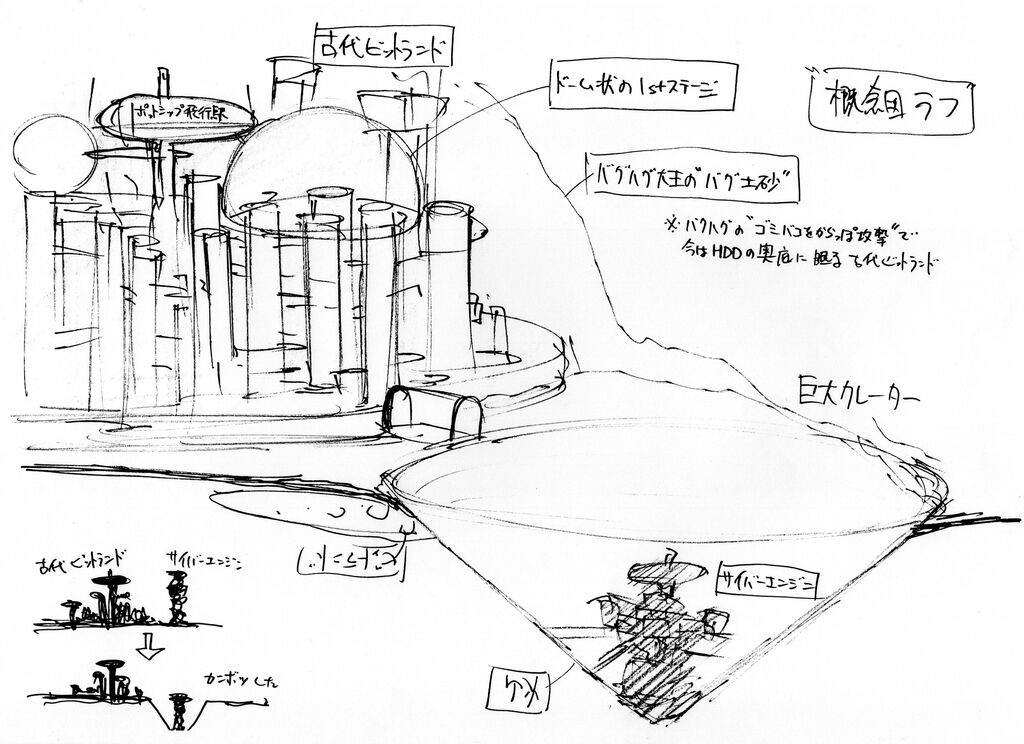 古代ビットランド
ドーム状の1stステージ
"概念図ラフ
ポットシップ飛行場
バグハグ大王の"バグ土砂"
※バグハグの"ゴミバコをからっぽ攻撃"で…
今はHDDの奥底に眠る古代ビットランド
巨大クレーター
古代ビットランド
サイバーエンジン
サイバーエンジン
カンボツした